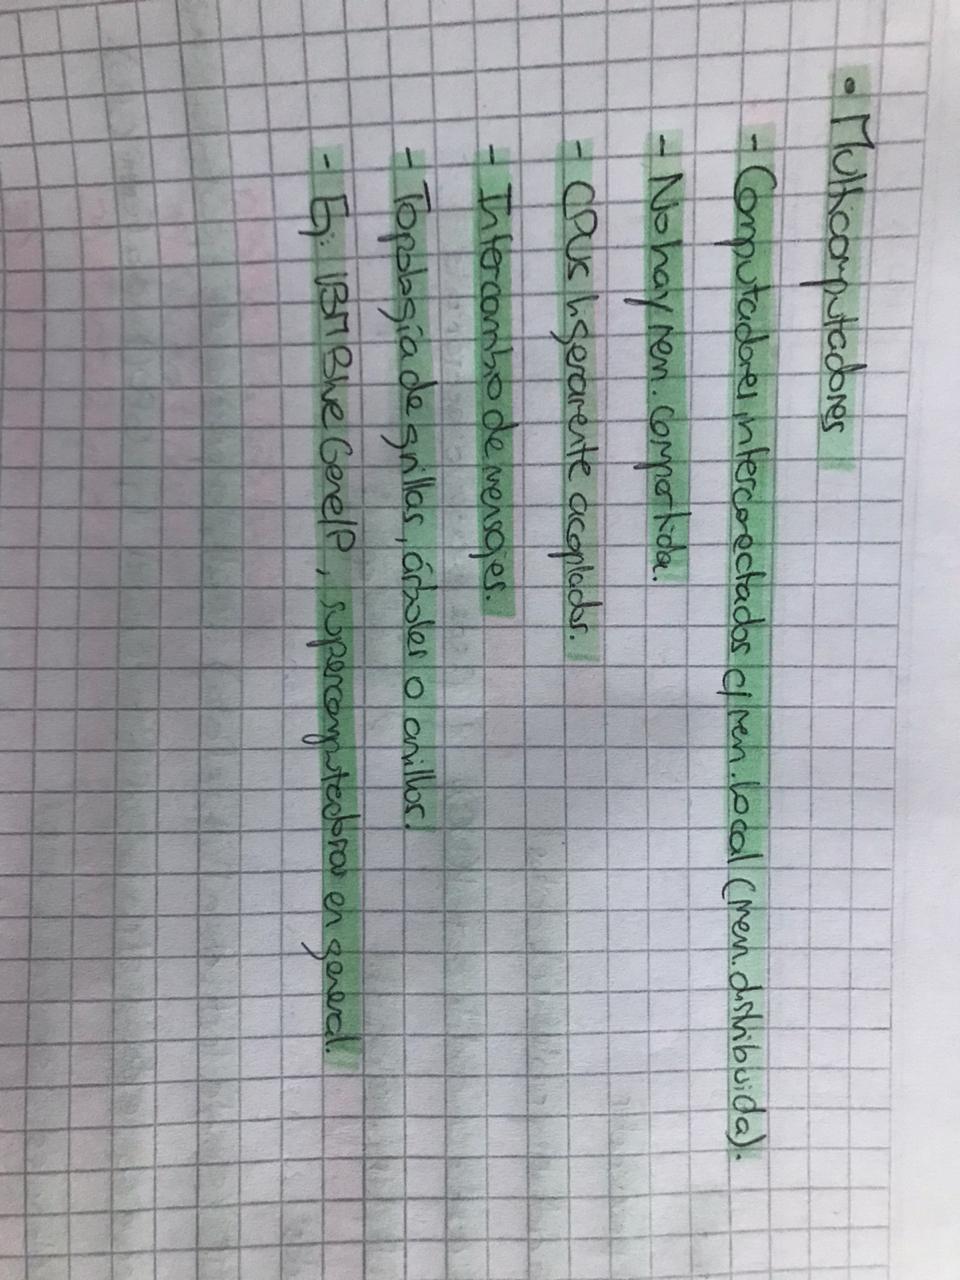 • Multicomputadores
- Computadores interconectados c/ mem. local (mem. distribuida).
- No hay mem. compartida.
- CPUs ligeramente acoplados.
- Intercambio de mensajes.
- Topología de grillas, árboles o anillos.
- Ej: IBM Blue Gene/P, supercomputadoras en general.